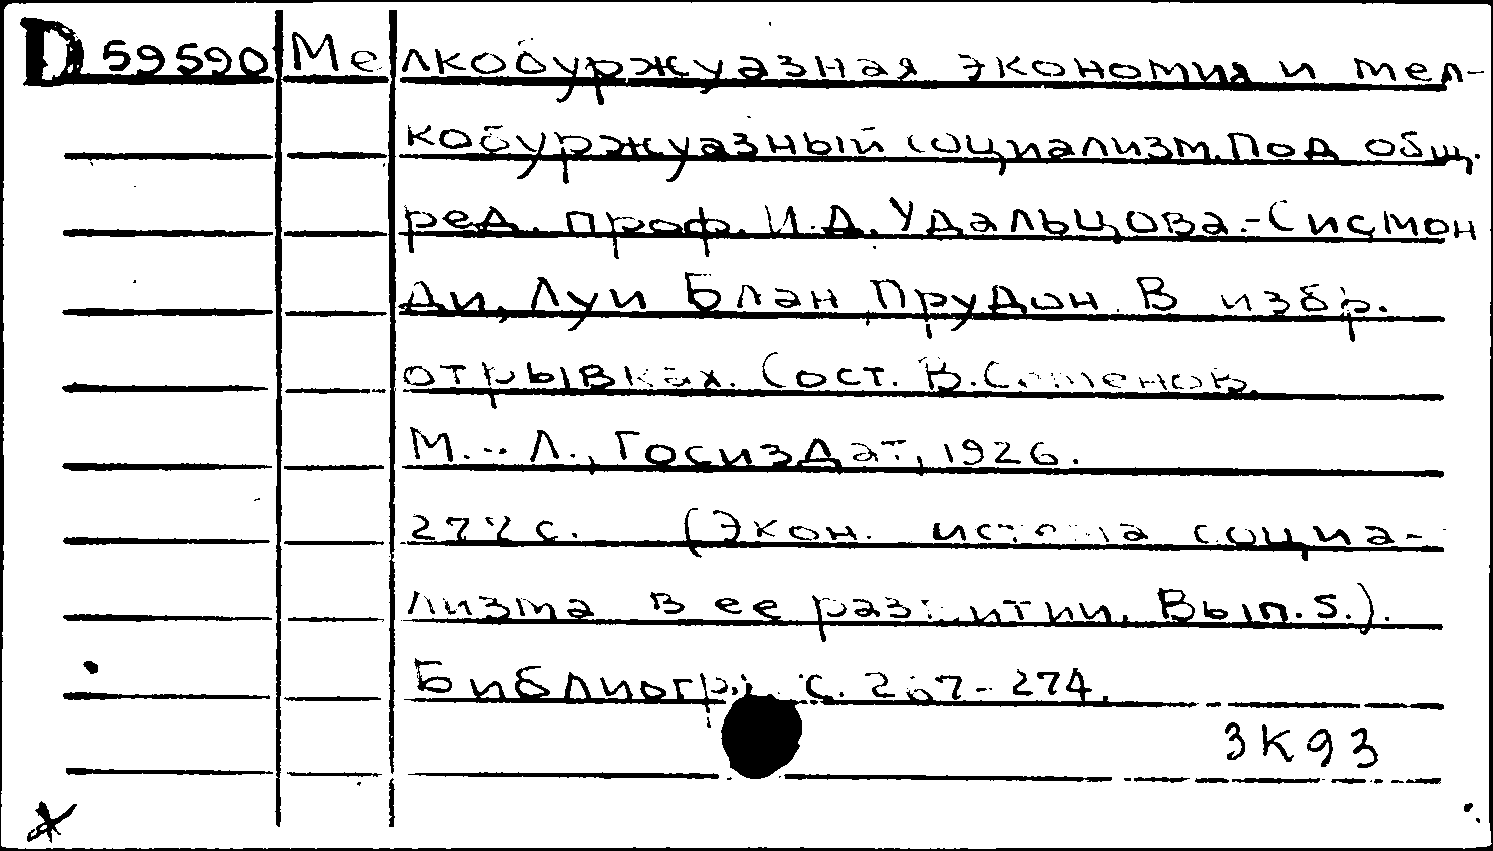 D 59590 Ме лкобуржуазная экономия и мел-
кобуржуазный социализм. Под общ.
ред. проф. И.Д. Удальцова.-Сисмон
ди, Луи Блан, Прудон. В избр.
отрывках. Сост. В.Семенов.
М.-Л., Госиздат, 1926.
с. (Экон. история социа-
лизма в ее развитии. Вып.5.).
Библиогр.: с. 267-274.
3К93